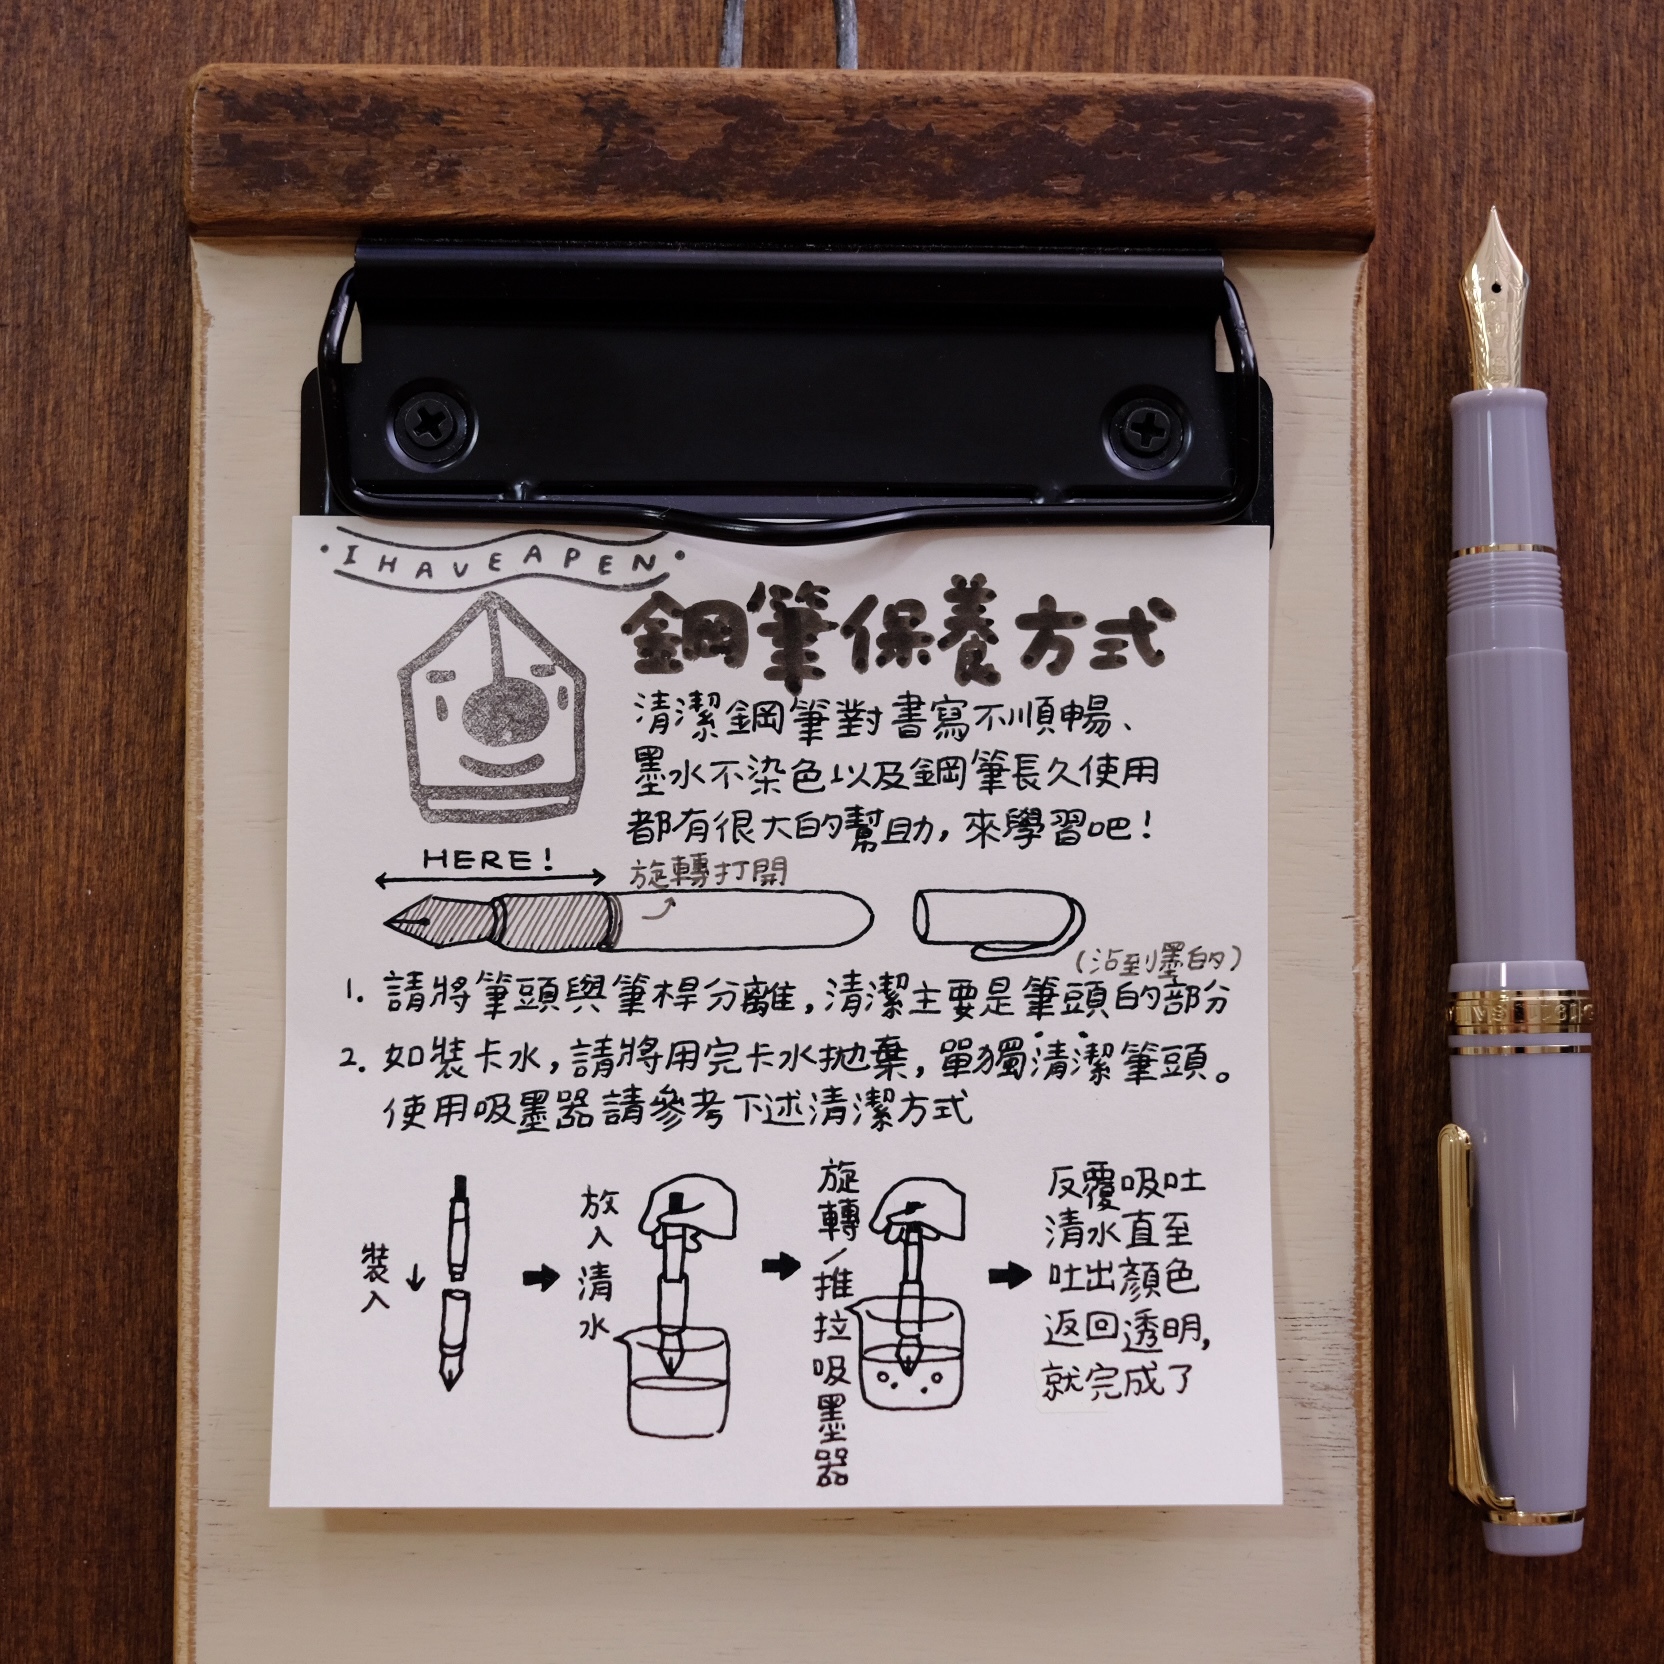 I HAVE A PEN
鋼筆保養方式
清潔鋼筆對書寫不順暢、
墨水不染色以及鋼筆長久使用
都有很大的幫助，來學習吧！
HERE!
旋轉打開
(沾到墨的)
1. 請將筆頭與筆桿分離，清潔主要是筆頭的部分
2. 如裝卡水，請將用完卡水拋棄，單獨清潔筆頭。
使用吸墨器請參考下述清潔方式
裝入
放入清水
旋轉/推拉吸墨器
反覆吸吐
清水直至
吐出顏色
返回透明，
就完成了